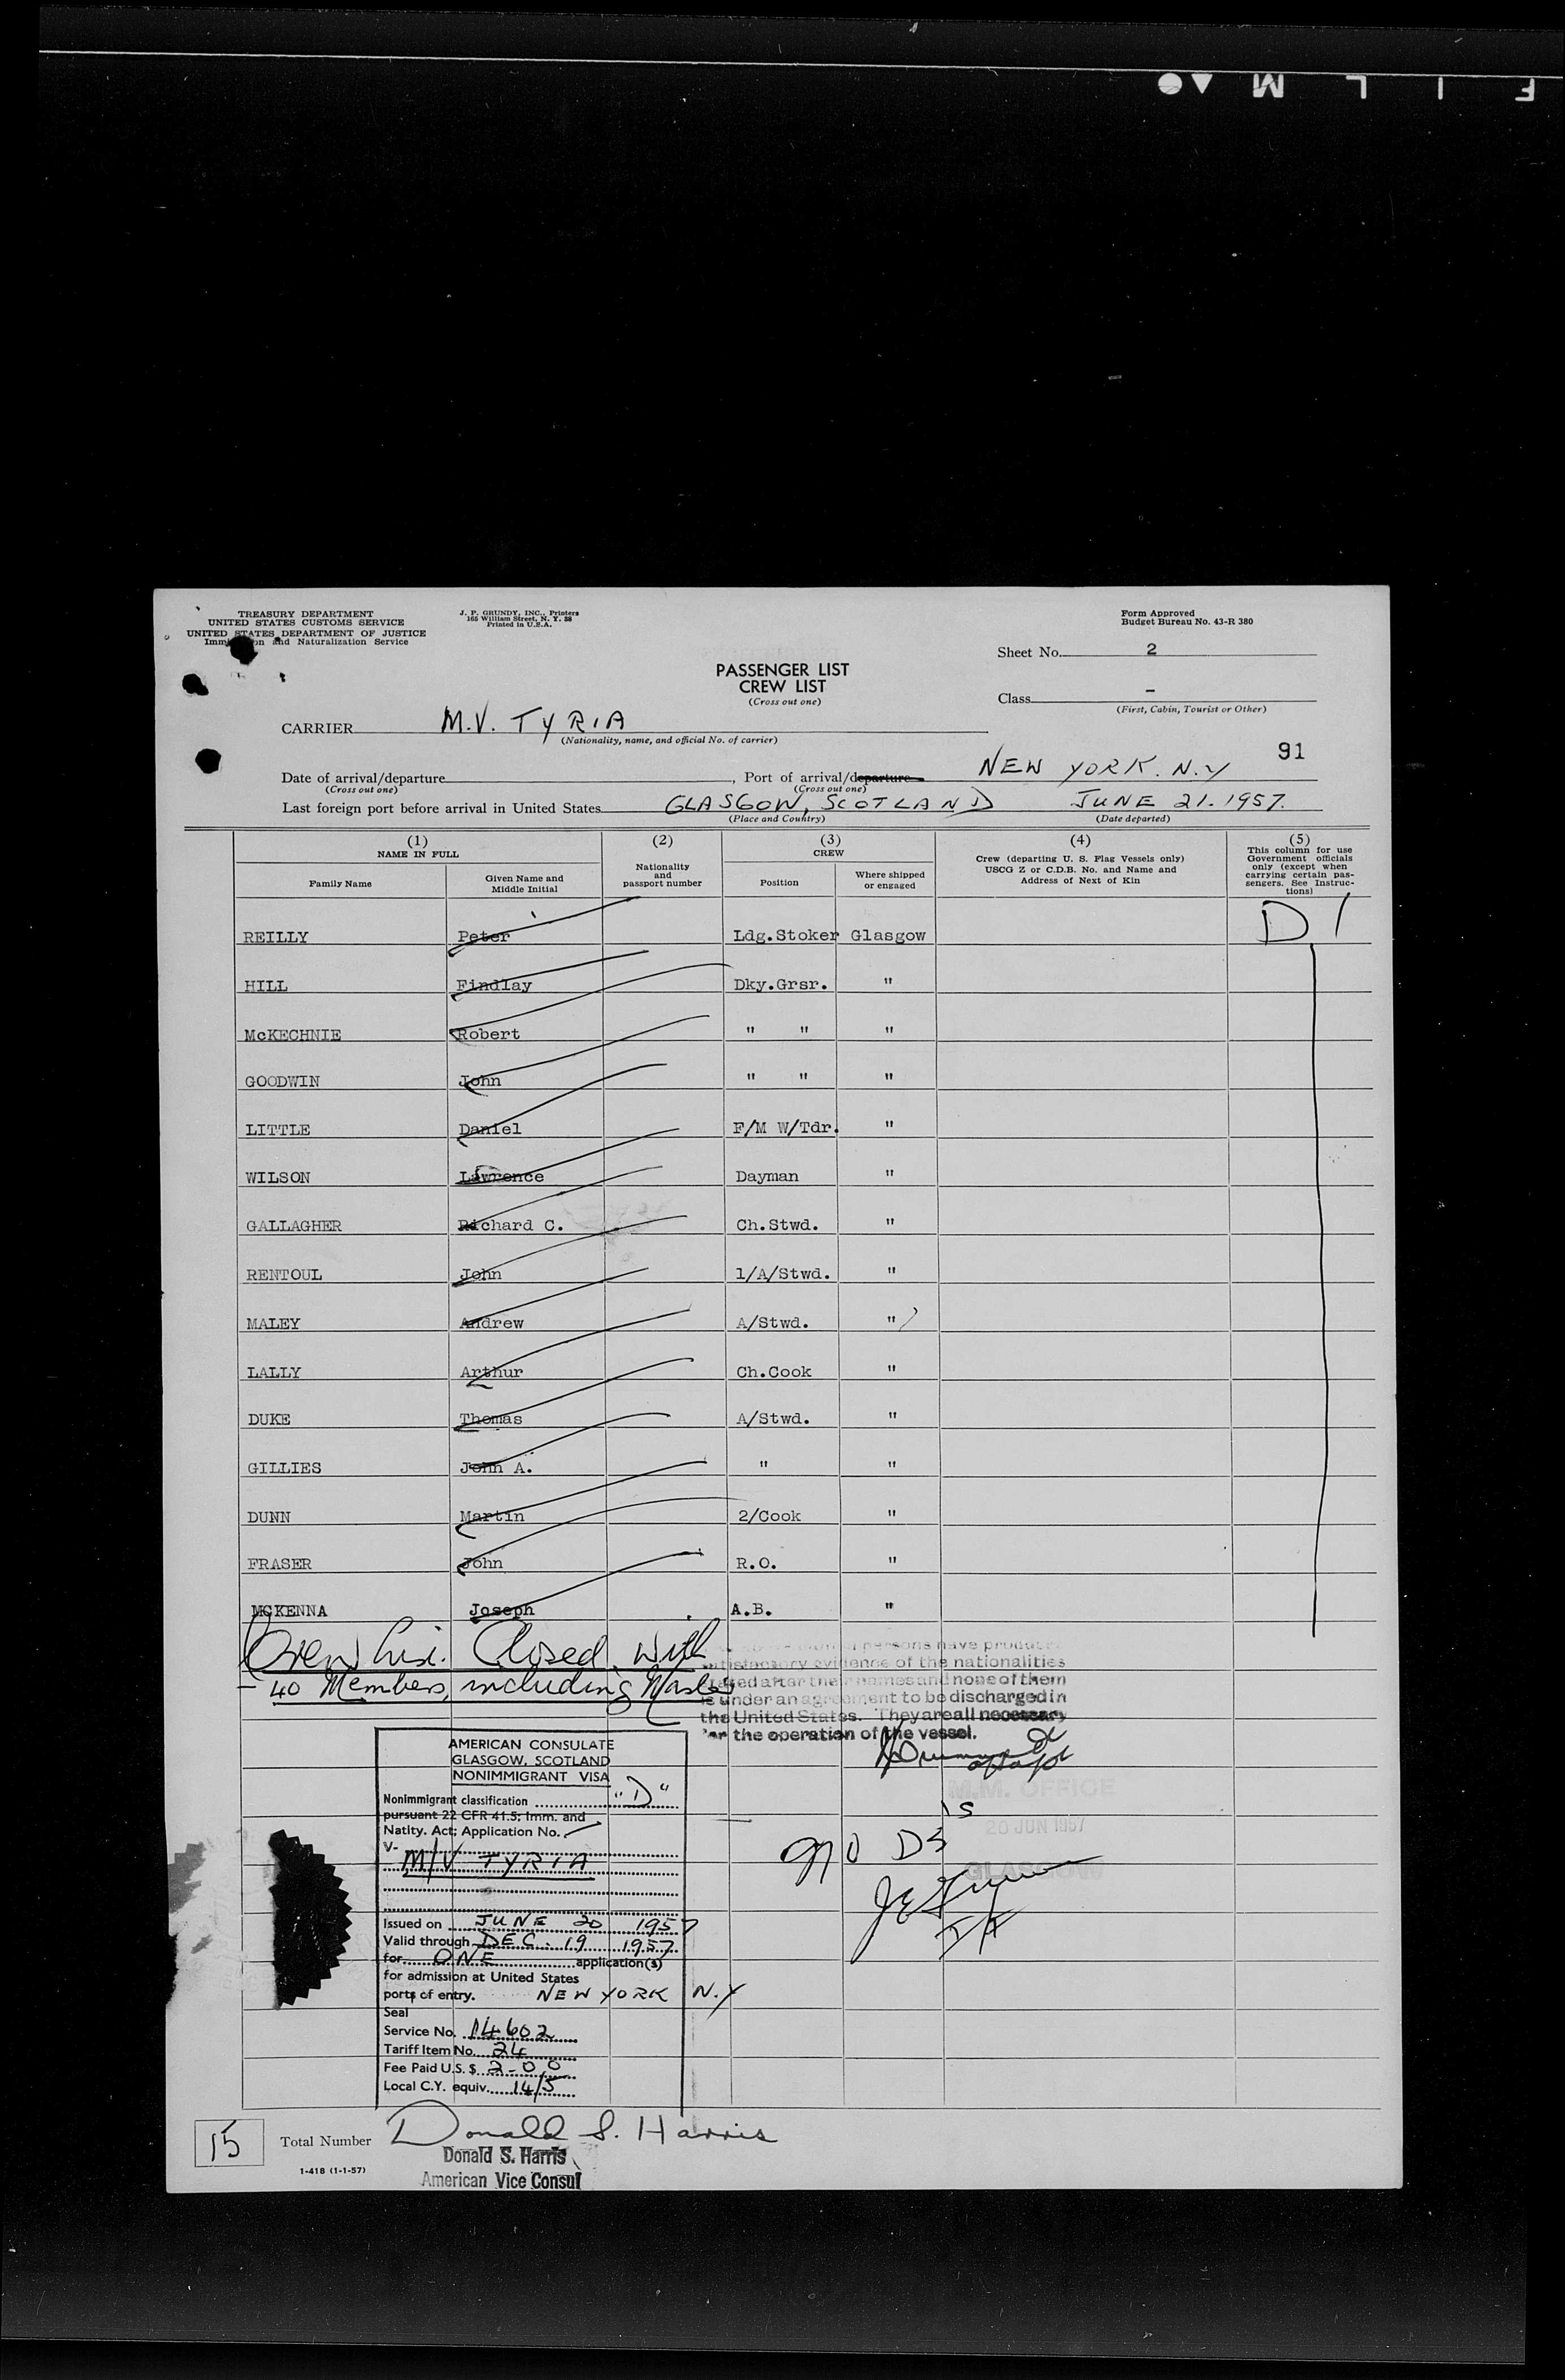 F I L M
TREASURY DEPARTMENT
UNITED STATES CUSTOMS SERVICE
UNITED STATES DEPARTMENT OF JUSTICE
Immigration and Naturalization Service
J. P. GRUNDY, INC., Printers
165 William Street, N. Y. 38
Printed in U.S.A.
Form Approved
Budget Bureau No. 43-R 380
Sheet No. 2
PASSENGER LIST
CREW LIST
(Cross out one)
Class –
(First, Cabin, Tourist or Other)
CARRIER M.V. TYRIA
(Nationality, name, and official No. of carrier)
91
Date of arrival/departure , Port of arrival/departure NEW YORK. N.Y
(Cross out one) (Cross out one)
Last foreign port before arrival in United States GLASGOW, SCOTLAND JUNE 21. 1957.
(Place and Country) (Date departed)
(1) (2) (3) (4) (5)
NAME IN FULL
Family Name
Given Name and
Middle Initial
Nationality
and
passport number
CREW
Position
Where shipped
or engaged
Crew (departing U. S. Flag Vessels only)
USCG Z or C.D.B. No. and Name and
Address of Next of Kin
This column for use
Government officials
only (except when
carrying certain pas-
sengers. See Instruc-
tions)
REILLY Peter Ldg.Stoker Glasgow D 1
HILL Findlay Dky.Grsr. "
McKECHNIE Robert " " "
GOODWIN John " " "
LITTLE Daniel F/M W/Tdr. "
WILSON Lawrence Dayman "
GALLAGHER Richard C. Ch.Stwd. "
RENTOUL John 1/A/Stwd. "
MALEY Andrew A/Stwd. "
LALLY Arthur Ch.Cook "
DUKE Thomas A/Stwd. "
GILLIES John A. " "
DUNN Martin 2/Cook "
FRASER John R.O. "
MCKENNA Joseph A.B. "
Crew List. Closed with
40 Members, including Master
persons have produced
satisfactory evidence of the nationalities
stated after their names and none of them
is under an agreement to be discharged in
the United States. They are all necessary
for the operation of the vessel.
M.M. OFFICE
20 JUN 1957
GLASGOW
AMERICAN CONSULATE
GLASGOW, SCOTLAND
NONIMMIGRANT VISA
Nonimmigrant classification "D"
pursuant 22 CFR 41.5; Imm. and
Natlty. Act; Application No.
V-
M/V TYRIA
Issued on JUNE 20 1957
Valid through DEC. 19 1957
for ONE application(s)
for admission at United States
ports of entry. NEW YORK N.Y
Seal
Service No. 14602
Tariff Item No. 24
Fee Paid U.S. $ 2-00
Local C.Y. equiv. 14/5
15 Total Number
Donald S. Harris
Donald S. Harris
American Vice Consul
I-418 (1-1-57)